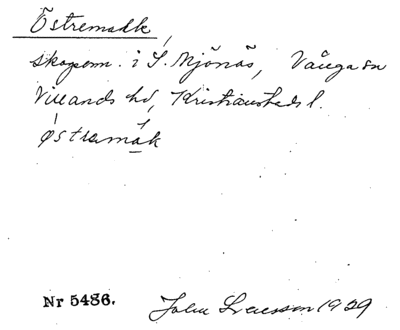 Östremadk,
skogsom. i S. Mjönäs, Vånga sn
Villands hd, Kristianstads l.
østramak
Nr 5486. John Larsson 1929